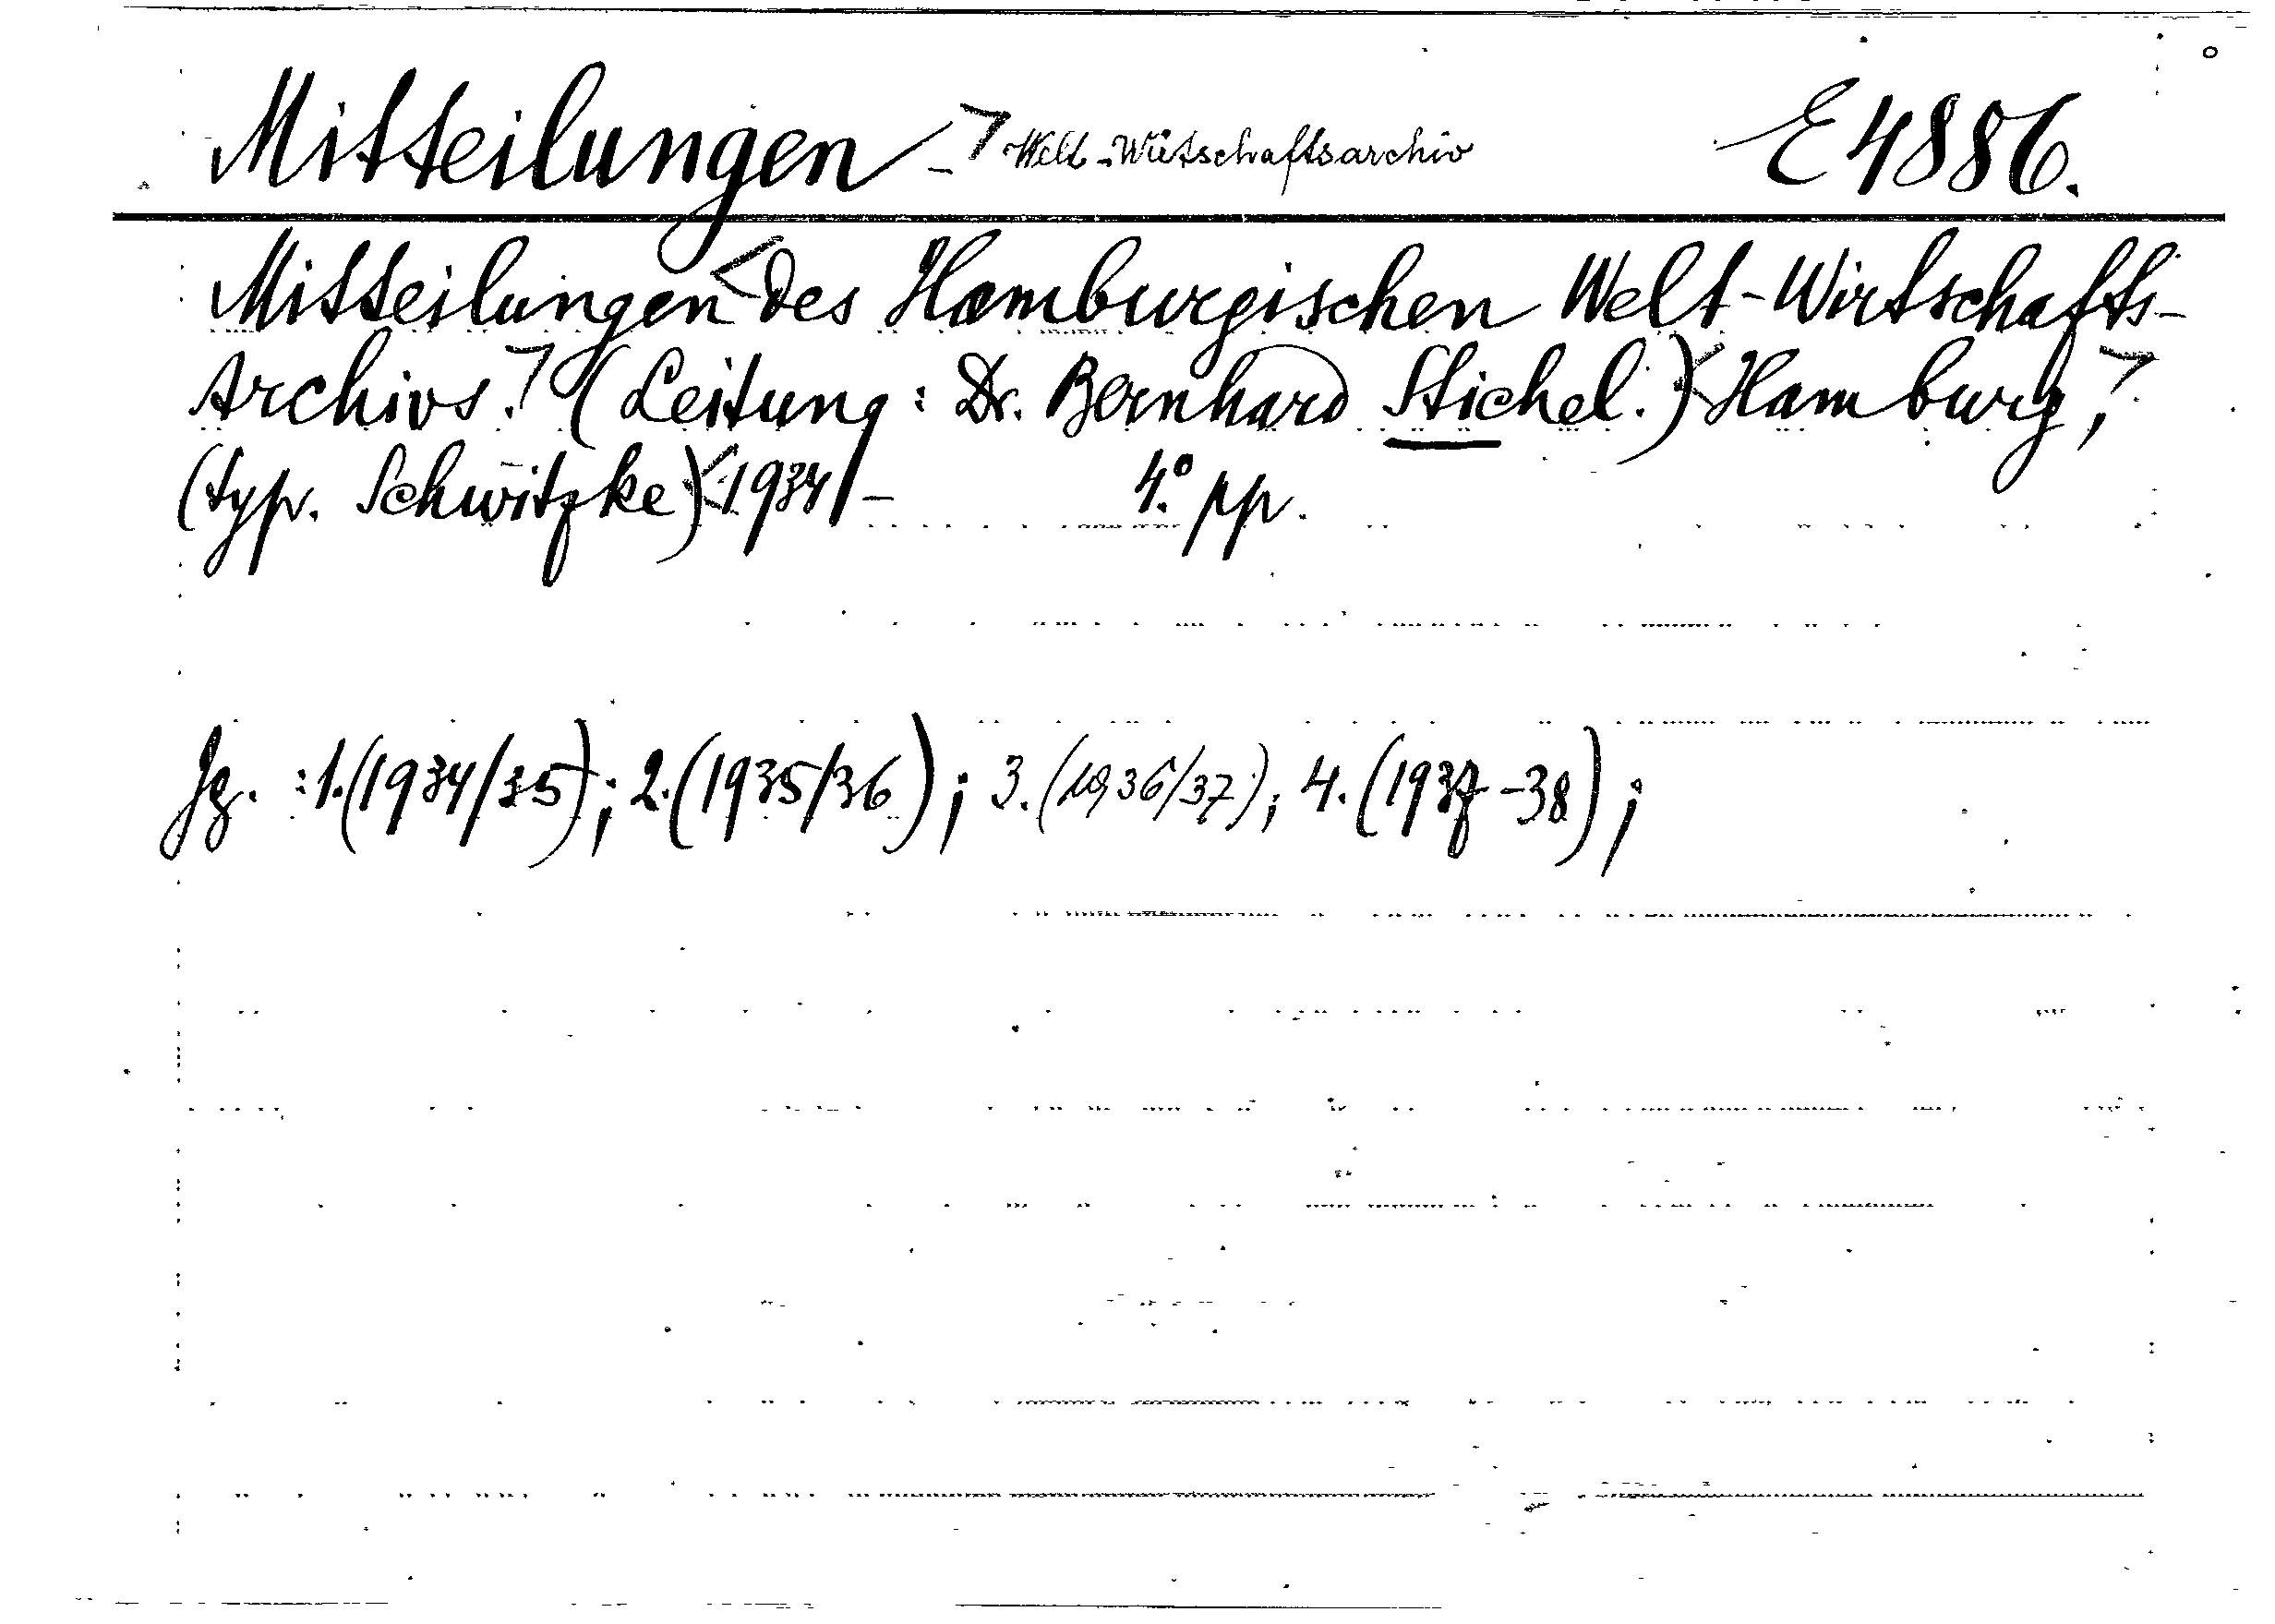 Mitteilungen - Welt-Wirtschaftsarchiv E 4886.
Mitteilungen des Hamburgischen Welt-Wirtschafts-
Archivs. (Leitung: Dr. Bernhard Stichel.) Hamburg,
(typ. Schwitzke) 1934 - 4.° pp.
Jg. : 1.(1934/35); 2.(1935/36); 3.(1936/37); 4.(1937-38);